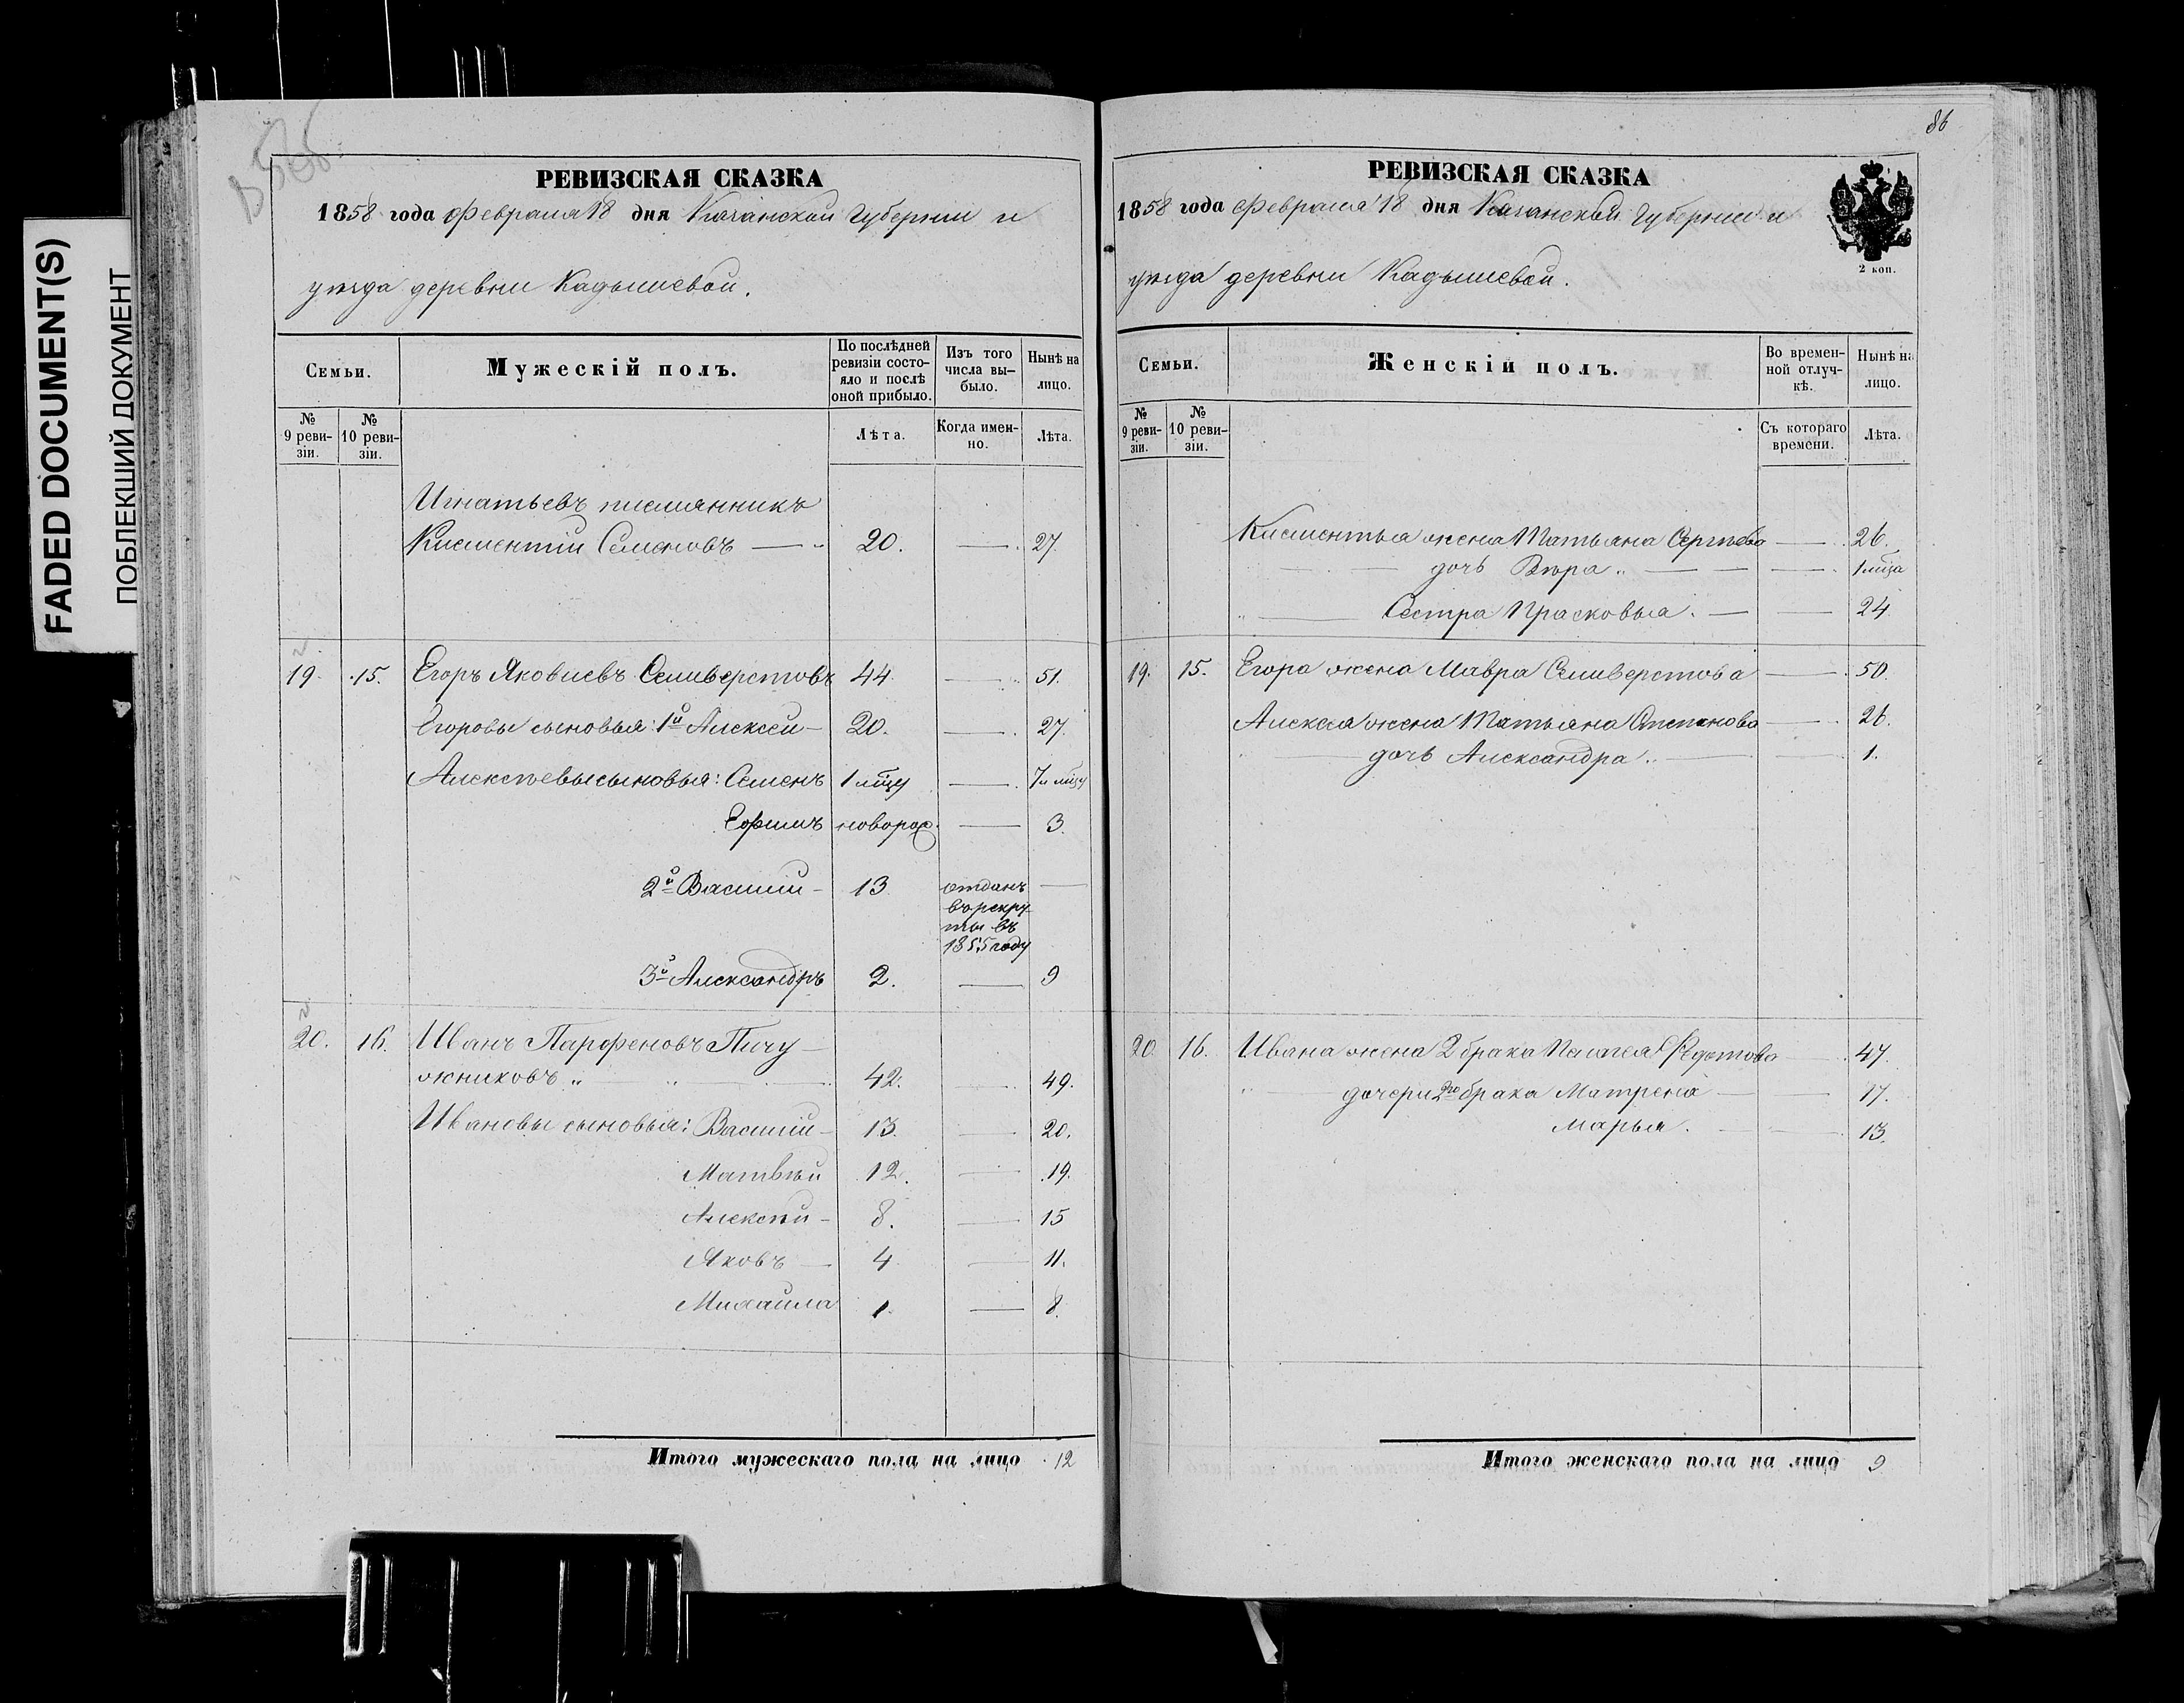 FADED DOCUMENT(S)
ПОБЛЕКШИЙ ДОКУМЕНТ
РЕВИЗСКАЯ СКАЗКА
1858 года Февраля 18 дня Казанской Губернии и
уѣзда деревни Кадышевой.
Семьи.
Мужескій полъ.
По послѣдней
ревизіи состо-
яло и послѣ
оной прибыло.
Изъ того
числа вы-
было.
Нынѣ на
лицо.
№
9 реви-
зіи.
№
10 реви-
зіи.
Лѣта.
Когда имен-
но.
Лѣта.
Игнатьевъ племянникъ
Климентій Семеновъ — 20. — 27.
19. 15. Егоръ Яковлевъ Селиверстовъ 44. — 51.
Егоровы сыновья: 1й Алексей 20. — 27.
Алексѣевы сыновья: Семенъ 1 мцу — 7 и мцу
Ефимъ новорож. — 3.
2й Василій 13 отданъ —
въ рекру
ты въ
1855 году
3й Александръ 2. — 9
20. 16. Иванъ Парфеновъ Пичу
жниковъ „ „ 42. — 49.
Ивановы сыновья: Василій 13. — 20.
Матвѣй 12. — 19.
Алексѣй 8. — 15
Яковъ 4 — 11.
Михаила 1. — 8.
Итого мужескаго пола на лицо 12
86
РЕВИЗСКАЯ СКАЗКА
1858 года Февраля 18 дня Казанской Губернии и
уѣзда деревни Кадышевой.
2 коп.
Семьи.
Женскій полъ.
Во времен-
ной отлуч-
кѣ.
Нынѣ на
лицо.
№
9 реви-
зіи.
№
10 реви-
зіи.
Съ котораго
времени.
Лѣта.
Климентья жена Татьяна Сергѣева — 26.
дочь Вѣра „ — 1 мца
Сестра Прасковья. — 24
19. 15. Егора жена Мавра Селиверстова — 50.
Алексея жена Татьяна Степанова — 26.
дочь Александра „ — 1.
20. 16. Ивана жена 2 брака Пелагея Федотова — 47.
дочери 2го брака Матрена — 17.
Марья. — 13.
Итого женскаго пола на лицо 9